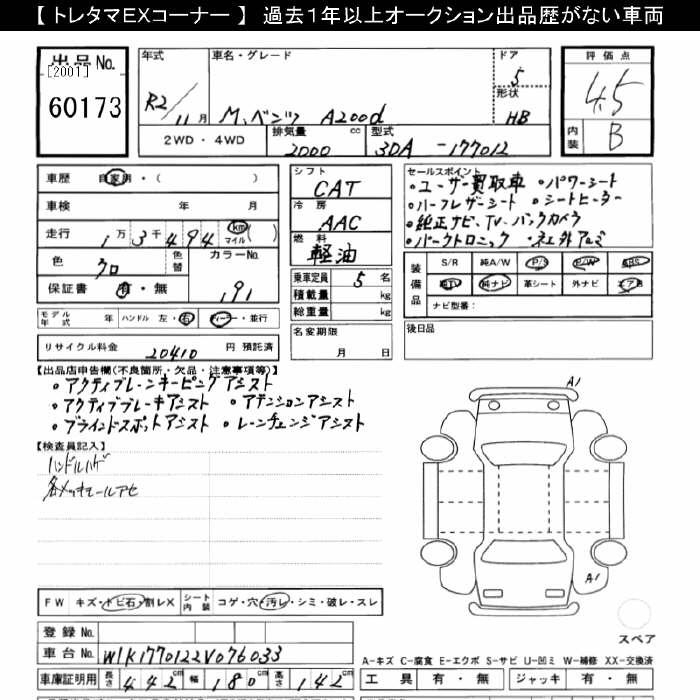 【 トレタマEXコーナー 】 過去１年以上オークション出品歴がない車両
出品No.
[2001]
60173
年式
R2/11月
車名・グレード
M.ベンツ A200d
ドア
5
形状
HB
評価点
4.5
内装
B
2WD・4WD
排気量
2000
cc
型式
3DA-177012
車歴
自家用・( )
車検
年 月
走行
1万3千494
km
マイル
( )
色
クロ
色替
カラーNo.
191
保証書
有・無
モデル年式
年
ハンドル
左・右
ディーラー・並行
リサイクル料金
20410
円 預託済
シフト
CAT
冷房
AAC
燃料
軽油
乗車定員
5
名
積載量
kg
総重量
kg
名変期限
月 日
セールスポイント
・ユーザー買取車 ・パワーシート
・ハーフレザーシート ・シートヒーター
・純正ナビ・TV・バックカメラ
・パークトロニック ・社外アルミ
装備品
S/R 純A/W P/S P/W ABS
純TV 純ナビ 革シート 外ナビ エアB
ナビ型番：
後日品
【出品店申告欄(不良箇所・欠品・注意事項等)】
・アクティブレーンキーピングアシスト
・アクティブブレーキアシスト ・アテンションアシスト
・ブラインドスポットアシスト ・レーンチェンジアシスト
【検査員記入】
ハンドルハゲ
各メッキモールアセ
A1
A1
スペア
FW
キズ・トビ石・割レX
シート内装
コゲ・穴・汚レ・シミ・破レ・スレ
登録No.
車台No.
W1K1770122V076033
車庫証明用
長さ
442
cm
幅
180
cm
高さ
142
cm
A−キズ C−腐食 E−エクボ S−サビ U−凹ミ W−補修 XX−交換済
工具
有・無
ジャッキ
有・無